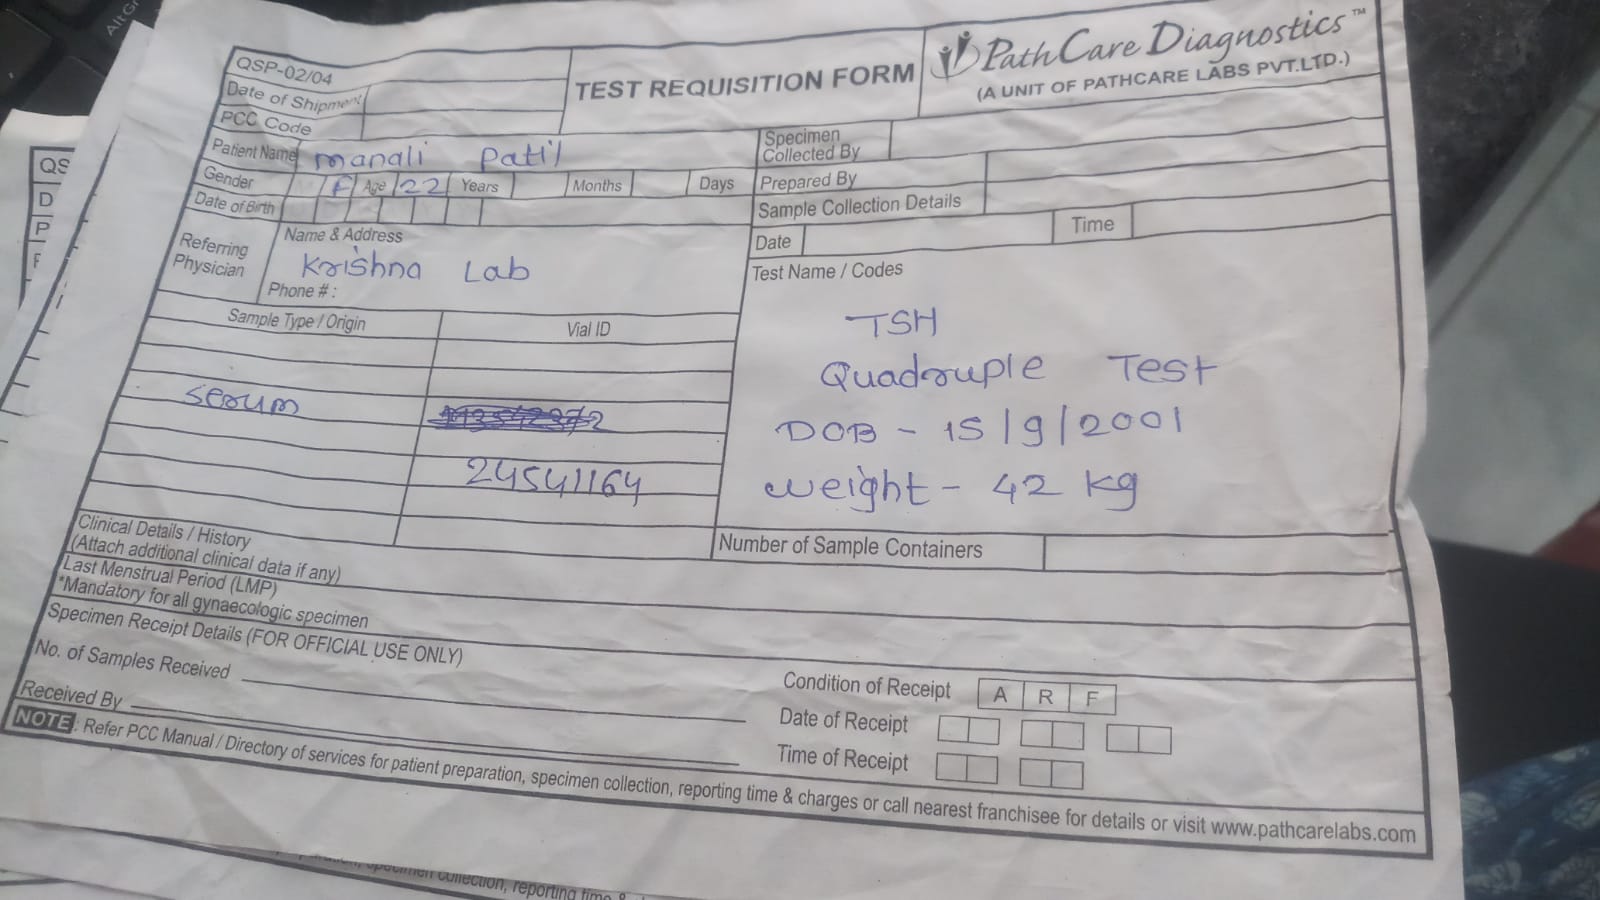 AltGr
QSP-02/04
Date of Shipment
PCC Code
TEST REQUISITION FORM
PathCare Diagnostics™
(A UNIT OF PATHCARE LABS PVT.LTD.)
Patient Name manali Patil
Gender F Age 22 Years Months Days
Date of Birth
Specimen
Collected By
Prepared By
Sample Collection Details
Date Time
Referring
Physician
Name & Address
Krishna Lab
Phone # :
Test Name / Codes
TSH
Quadruple Test
DOB - 15/9/2001
weight - 42 kg
Sample Type / Origin Vial ID
serum
24541164
Number of Sample Containers
Clinical Details / History
(Attach additional clinical data if any)
Last Menstrual Period (LMP)
*Mandatory for all gynaecologic specimen
Specimen Receipt Details (FOR OFFICIAL USE ONLY)
No. of Samples Received
Received By
Condition of Receipt A R F
Date of Receipt
Time of Receipt
NOTE : Refer PCC Manual / Directory of services for patient preparation, specimen collection, reporting time & charges or call nearest franchisee for details or visit www.pathcarelabs.com
QS
D
P
specimen collection, reporting time &